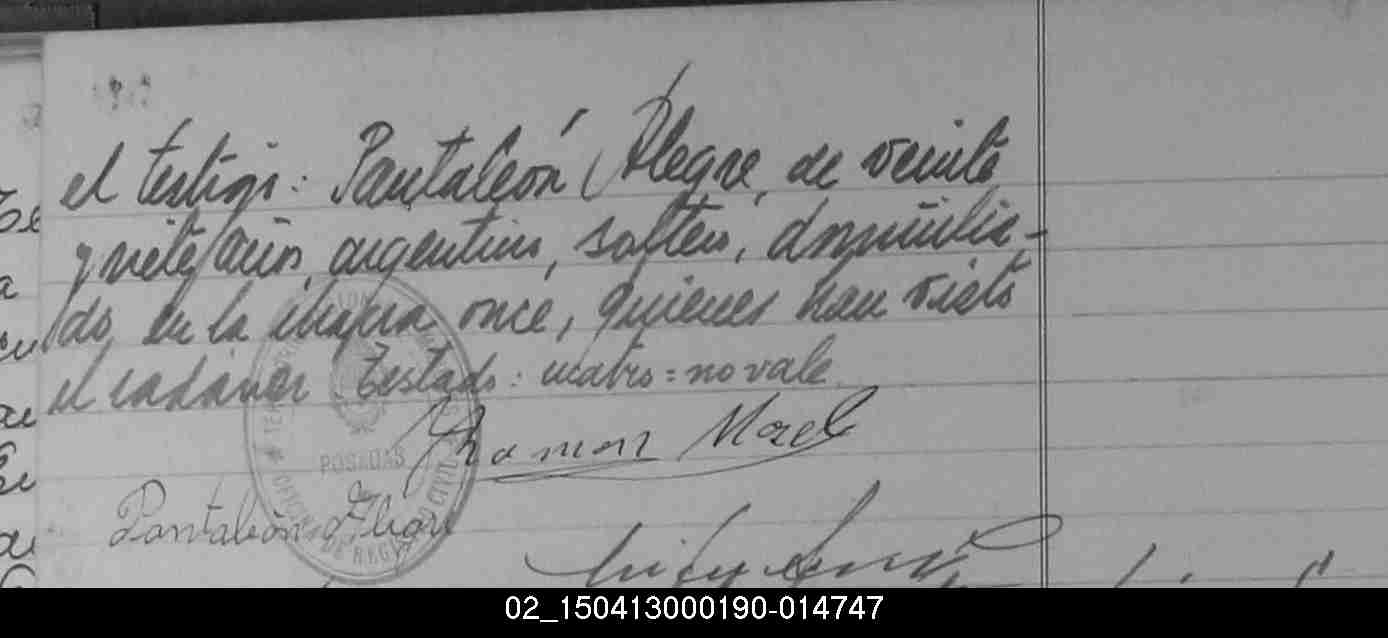 el testigo: Pantaleón Alegre, de veinte
y siete años, argentino, soltero, domicilia-
do en la chacra once, quienes han visto
el cadáver. Testado: cuatro = no vale.
Ramon Morel
POSADAS
Pantaleón Alegre
02_150413000190-014747